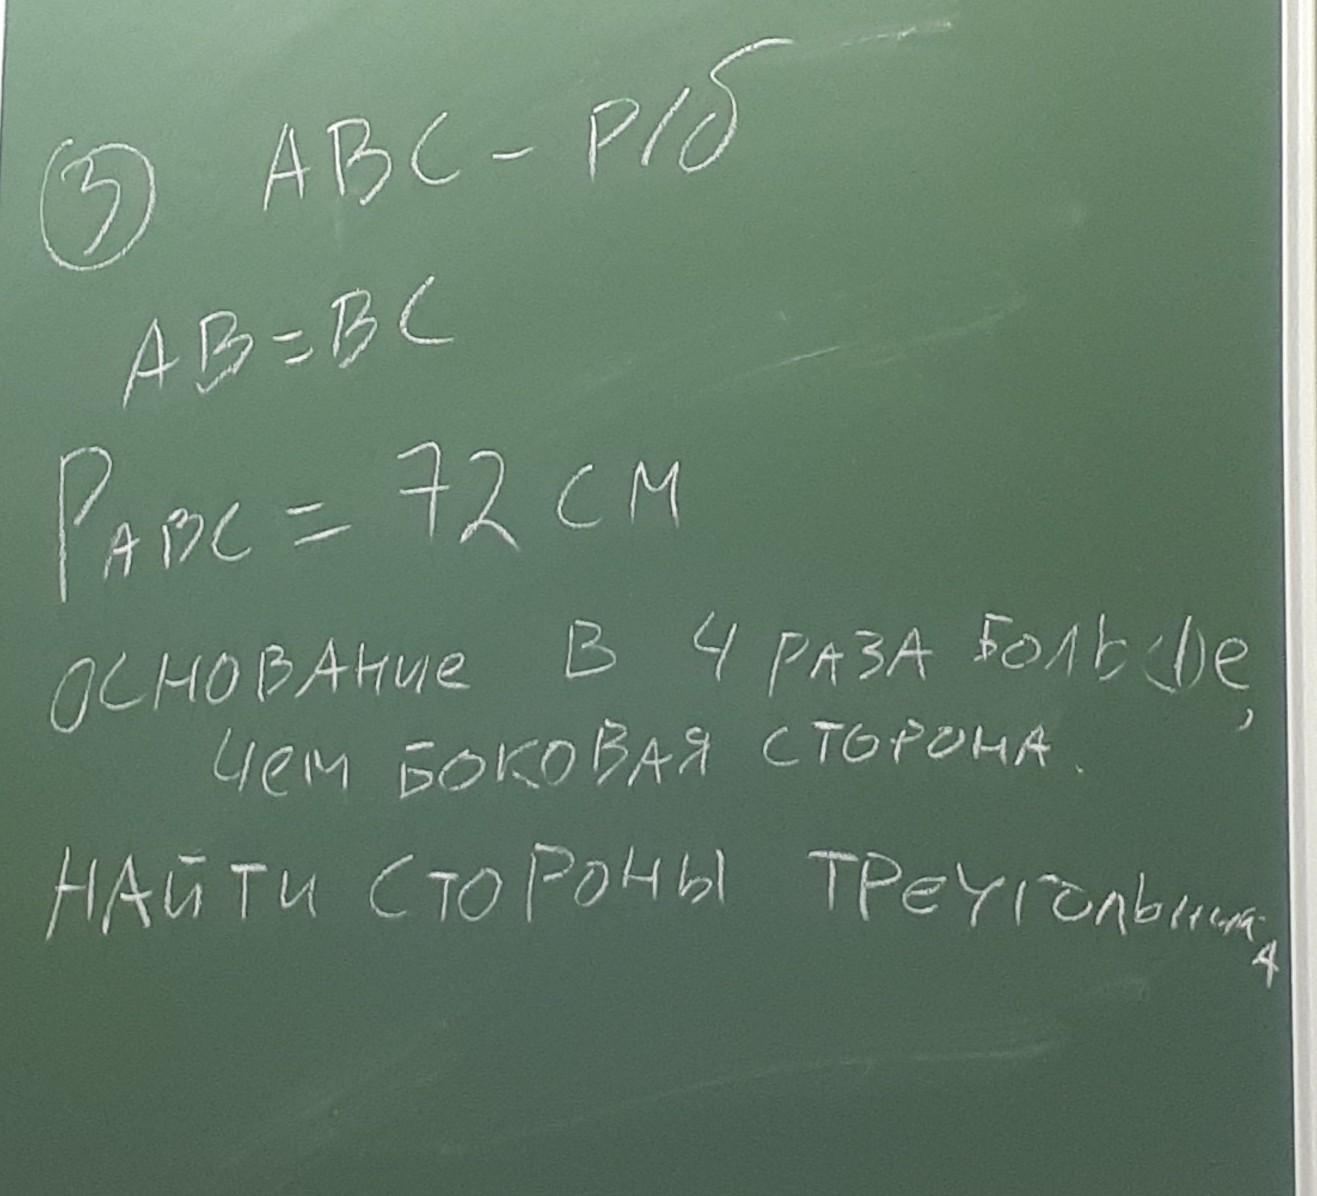 ③ ABC - Р/б
AB = BC
P ABC = 72 см
ОСНОВАНИе В 4 РАЗА БОЛЬШе,
чем БОКОВАЯ СТОРОНА.
НАЙТИ СТОРОНЫ ТРеУГОЛЬНИКА